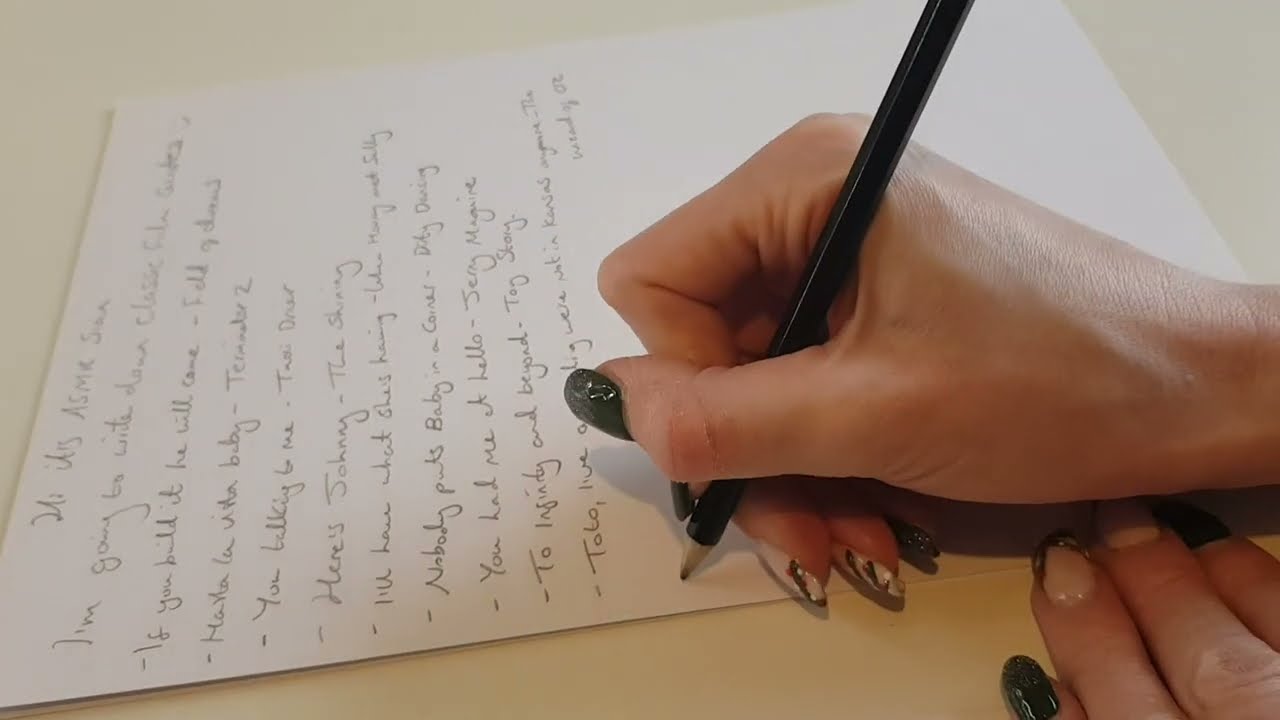 Hi it's ASMR
I'm going to write down Classic Film Quotes
- If you build it he will come - Field of dreams
- Hasta la vista baby - Terminator 2
- You talking to me - Taxi Driver
- Heres Johnny - The Shining
- I'll have what she's having - When Harry met Sally
- Nobody puts Baby in a Corner - Dirty Dancing
- You had me at hello - Jerry Maguire
- To Infinity and beyond - Toy Story.
- Toto, Iive a were not in Kansas anymore - The
wizard of OZ